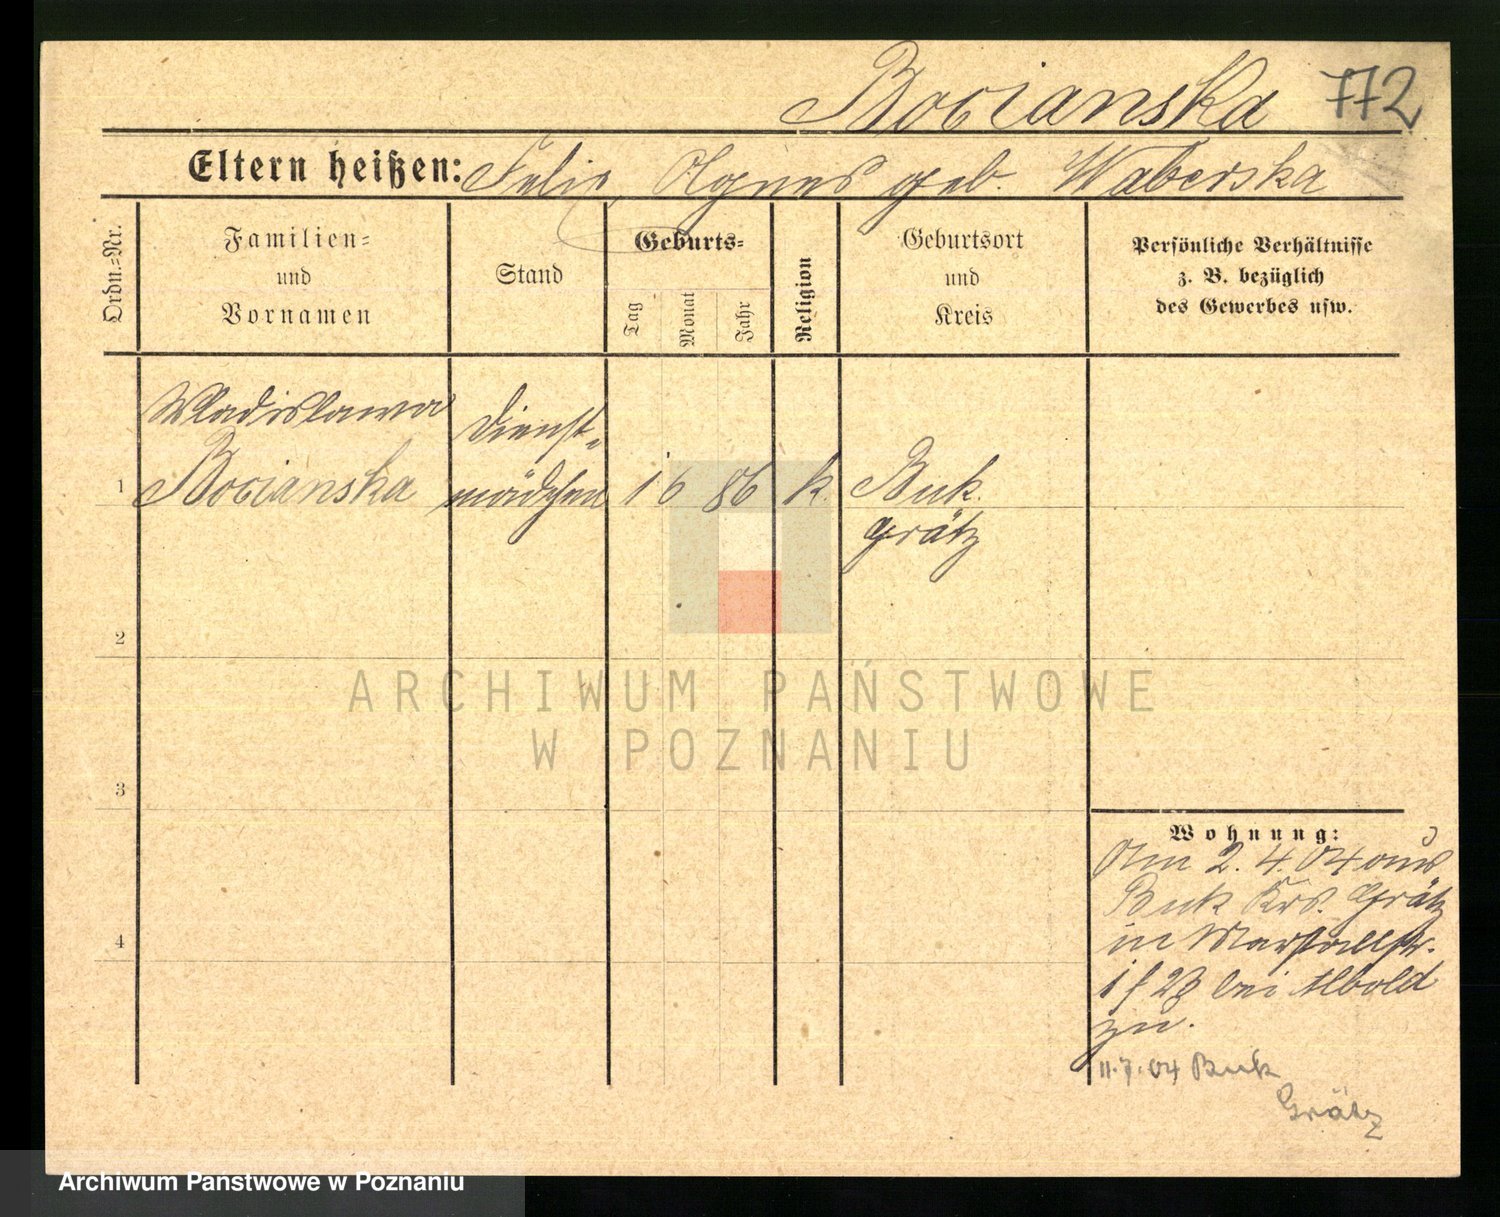 Bocianska 772
Eltern heißen: Felix, Agnes geb. Waberska
Ordn.=Nr.
Familien=
und
Vornamen
Stand
Geburts=
Tag
Monat
Jahr
Religion
Geburtsort
und
Kreis
Persönliche Verhältnisse
z. B. bezüglich
des Gewerbes usw.
Wladislawa
Dienst=
1 Bocianska mädchen 1 6 86 k. Buk.
Grätz
2
3
4
ARCHIWUM PAŃSTWOWE
W POZNANIU
Wohnung:
Am 2. 4. 04 aus
Buk Krs. Grätz
in
bei
zu.
11.7.04 Buk
Grätz
Archiwum Państwowe w Poznaniu